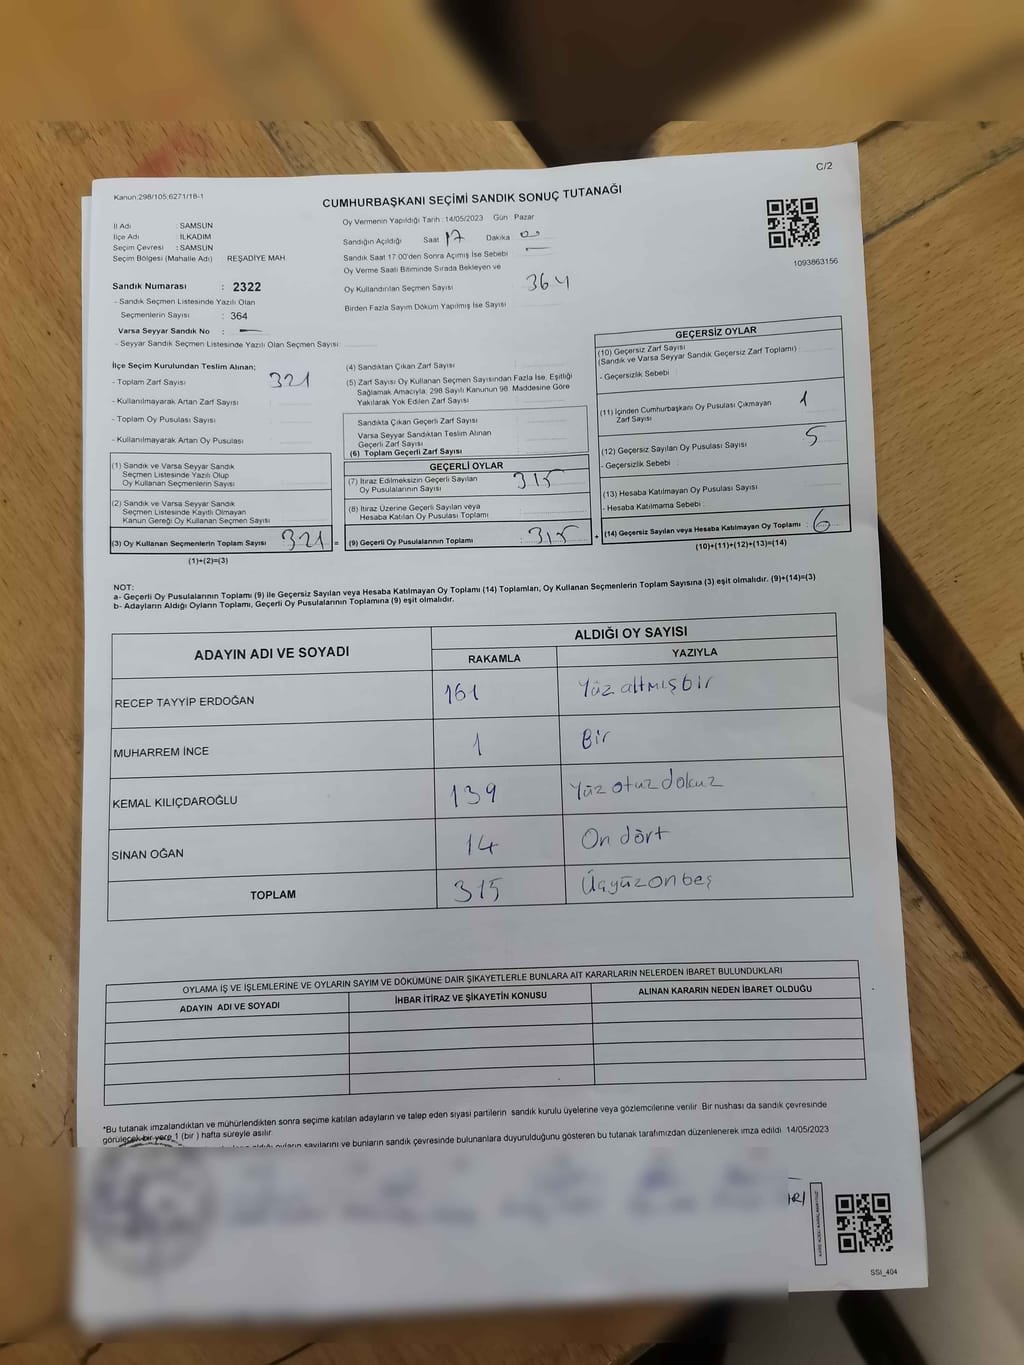 C/2
Kanun:298/105;6271/18-1
CUMHURBAŞKANI SEÇİMİ SANDIK SONUÇ TUTANAĞI
İl Adı : SAMSUN
İlçe Adı : İLKADIM
Seçim Çevresi : SAMSUN
Seçim Bölgesi (Mahalle Adı) : REŞADİYE MAH.
Oy Vermenin Yapıldığı Tarih : 14/05/2023 Gün : Pazar
Sandığın Açıldığı Saat 17 Dakika 00
Sandık Saat 17:00'den Sonra Açılmış İse Sebebi
Oy Verme Saati Bitiminde Sırada Bekleyen ve
Oy Kullandırılan Seçmen Sayısı 364
Birden Fazla Sayım Döküm Yapılmış İse Sayısı
1093863156
Sandık Numarası : 2322
- Sandık Seçmen Listesinde Yazılı Olan
Seçmenlerin Sayısı : 364
Varsa Seyyar Sandık No :
- Seyyar Sandık Seçmen Listesinde Yazılı Olan Seçmen Sayısı:
İlçe Seçim Kurulundan Teslim Alınan;
- Toplam Zarf Sayısı 321
- Kullanılmayarak Artan Zarf Sayısı
- Toplam Oy Pusulası Sayısı
- Kullanılmayarak Artan Oy Pusulası
(1) Sandık ve Varsa Seyyar Sandık
Seçmen Listesinde Yazılı Olup
Oy Kullanan Seçmenlerin Sayısı
(2) Sandık ve Varsa Seyyar Sandık
Seçmen Listesinde Kayıtlı Olmayan
Kanun Gereği Oy Kullanan Seçmen Sayısı
(3) Oy Kullanan Seçmenlerin Toplam Sayısı 321 =
(1)+(2)=(3)
(4) Sandıktan Çıkan Zarf Sayısı
(5) Zarf Sayısı Oy Kullanan Seçmen Sayısından Fazla İse, Eşitliği
Sağlamak Amacıyla; 298 Sayılı Kanunun 98. Maddesine Göre
Yakılarak Yok Edilen Zarf Sayısı
Sandıkta Çıkan Geçerli Zarf Sayısı
Varsa Seyyar Sandıktan Teslim Alınan
Geçerli Zarf Sayısı
(6) Toplam Geçerli Zarf Sayısı
GEÇERLİ OYLAR
(7) İtiraz Edilmeksizin Geçerli Sayılan
Oy Pusulalarının Sayısı 315
(8) İtiraz Üzerine Geçerli Sayılan veya
Hesaba Katılan Oy Pusulası Toplamı
(9) Geçerli Oy Pusulalarının Toplamı : 315 +
GEÇERSİZ OYLAR
(10) Geçersiz Zarf Sayısı
(Sandık ve Varsa Seyyar Sandık Geçersiz Zarf Toplamı) :
- Geçersizlik Sebebi :
(11) İçinden Cumhurbaşkanı Oy Pusulası Çıkmayan
Zarf Sayısı 1
(12) Geçersiz Sayılan Oy Pusulası Sayısı 5
- Geçersizlik Sebebi :
(13) Hesaba Katılmayan Oy Pusulası Sayısı
- Hesaba Katılmama Sebebi :
(14) Geçersiz Sayılan veya Hesaba Katılmayan Oy Toplamı : 6
(10)+(11)+(12)+(13)=(14)
NOT:
a- Geçerli Oy Pusulalarının Toplamı (9) ile Geçersiz Sayılan veya Hesaba Katılmayan Oy Toplamı (14) Toplamları, Oy Kullanan Seçmenlerin Toplam Sayısına (3) eşit olmalıdır. (9)+(14)=(3)
b- Adayların Aldığı Oyların Toplamı, Geçerli Oy Pusulalarının Toplamına (9) eşit olmalıdır.
ADAYIN ADI VE SOYADI
ALDIĞI OY SAYISI
RAKAMLA YAZIYLA
RECEP TAYYİP ERDOĞAN 161 Yüz altmışbir
MUHARREM İNCE 1 Bir
KEMAL KILIÇDAROĞLU 139 Yüz otuz dokuz
SİNAN OĞAN 14 On dört
TOPLAM 315 Üçyüzonbeş
OYLAMA İŞ VE İŞLEMLERİNE VE OYLARIN SAYIM VE DÖKÜMÜNE DAİR ŞİKAYETLERLE BUNLARA AİT KARARLARIN NELERDEN İBARET BULUNDUKLARI
ADAYIN ADI VE SOYADI İHBAR İTİRAZ VE ŞİKAYETİN KONUSU ALINAN KARARIN NEDEN İBARET OLDUĞU
*Bu tutanak imzalandıktan ve mühürlendikten sonra seçime katılan adayların ve talep eden siyasi partilerin sandık kurulu üyelerine veya gözlemcilerine verilir. Bir nüshası da sandık çevresinde
görülecek bir yere 1 (bir) hafta süreyle asılır.
aldığı oyların sayılarını ve bunların sandık çevresinde bulunanlara duyurulduğunu gösteren bu tutanak tarafımızdan düzenlenerek imza edildi. 14/05/2023
SSI_404